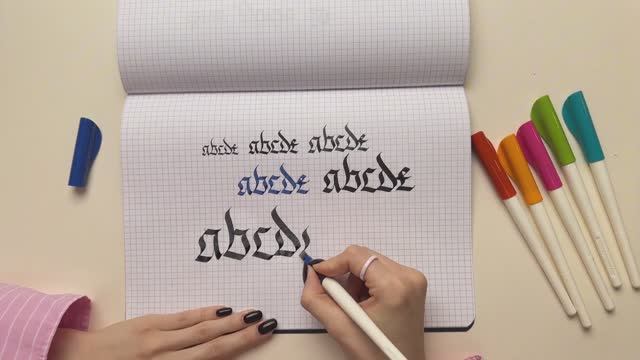 abcde abcde abcde
abcde abcde
abcd